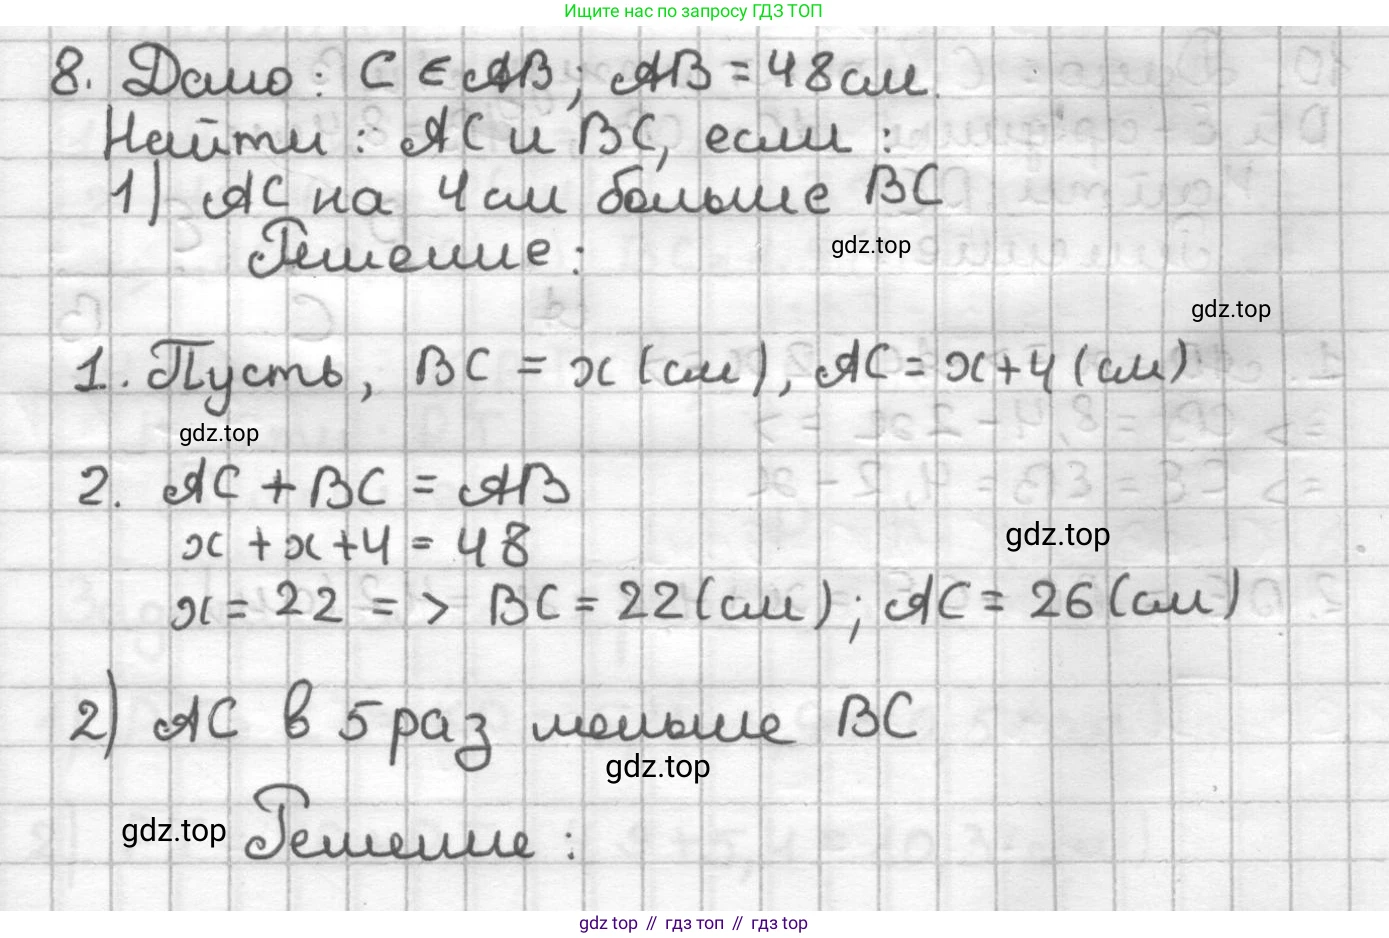 Ищите нас по запросу ГДЗ ТОП
8. Дано: C ∈ AB; AB = 48 см.
Найти: AC и BC, если:
1) AC на 4 см больше BC
Решение:
gdz.top
gdz.top
1. Пусть, BC = x (см), AC = x+4 (см)
gdz.top
2. AC + BC = AB
x + x + 4 = 48
gdz.top
x = 22 => BC = 22 (см); AC = 26 (см)
2) AC в 5 раз меньше BC
gdz.top
gdz.top
Решение:
gdz top // гдз топ // гдз top